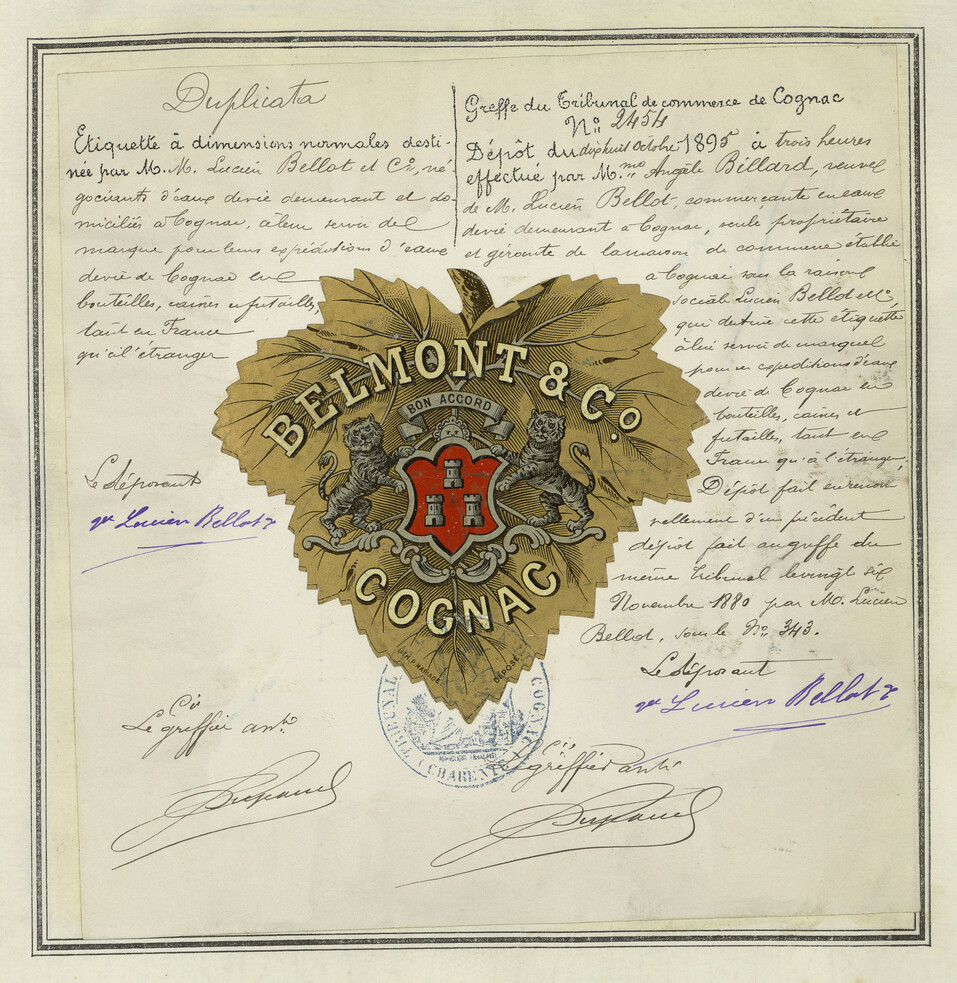 Duplicata
Etiquette à dimensions normales desti-
née par M. M. Lucien Bellot et Cº, né-
gociants d'eaux devie demeurant et do-
miciliés à Cognac, à leur servir de
marque pour leurs expéditions d'eaux
devie de Cognac en
bouteilles, caisses et futailles,
tant en France
qu'à l'étranger
Le déposant
Vve Lucien Bellot
Le greffier
Greffe du Tribunal de commerce de Cognac
Nº 2454
Dépôt du dix huit Octobre 1895 à trois heures
effectué par Mme Angèle Billard, veuve
de M. Lucien Bellot, commerçante en eaux
devie demeurant à Cognac, seule propriétaire
et gérante de la maison de commerce établie
à Cognac sous la raison
sociale Lucien Bellot et Cº,
qui destine cette étiquette
à lui servir de marque
pour ses expéditions d'eaux
devie de Cognac en
bouteilles, caisses et
futailles, tant en
France qu'à l'étranger,
Dépôt fait en renou
vellement d'un précédent
dépôt fait au greffe du
même Tribunal le vingt six
Novembre 1880 par M. Lucien
Bellot, sous le Nº 343.
Le déposant
Vve Lucien Bellot
Le greffier
BELMONT & Co.
BON ACCORD
COGNAC
LITH. P. MARIAGE
DÉPOSÉ
TRIBUNAL COGNAC
RÉPUBLIQUE FRANÇAISE
(CHARENTE)